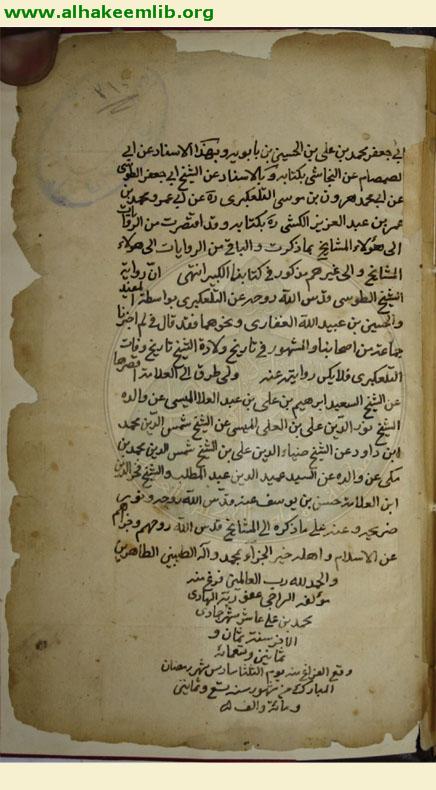 www.alhakeemlib.org
٣١٠
ابي جعفر محمد بن علي بن الحسين بن بابويه وبهذا الاسناد عن ابي
لصمصام عن النجاشي بكتابه وبالاسناد عن الشيخ ابي جعفر الطوسي
عن ابي محمد هرون بن موسى التلعكبري ره عن ابي عمرو محمد بن
عمر بن عبد العزيز الكشي ره بكتابه وقد اقتصرت من الروايات
الى هؤلاء المشايخ بما ذكرت والباقي من الروايات الى هؤلاء
المشايخ والى غيرهم مذكور في كتابنا الكبير انتهى ان رواية
الشيخ الطوسي قدس الله روحه عن التلعكبري بواسطة المفيد
والحسين بن عبيد الله الغضاري ونحوهما فقد قال في لم اخبرنا
جماعة من اصحابنا والمشهور في تاريخ ولادة الشيخ تاريخ وفات
التلعكبري فلا يكن روايته عنه ولي طرق الى العلامة اقصرها
عن الشيخ السعيد ابرهيم بن علي بن عبد العلا الميسي عن والده
الشيخ نور الدين علي بن العلي الميسي عن الشيخ شمس الدين محمد
ابن داود عن الشيخ ضياء الدين علي بن الشيخ شمس الدين محمد بن
مكي عن والده عن السيد عميد الدين عبد المطلب والشيخ فخر الدين
ابن العلامة حسن بن يوسف عنه قدس الله روحه ونور
ضريحه وعنه على ما ذكره الى المشايخ قدس الله روحهم وجزاهم
عن الاسلام واهله خير الجزاء بمحمد وآله الطيبين الطاهرين
والحمد لله رب العالمين فرغ منه
مؤلفه الراجي عفو ربه الهادي
محمد بن علي عاشر شهر جمادى
الاخر سنة ثمان و
ثمانين وتسعمائة
وقع الفراغ منه يوم الثلثا سادس شهر رمضان
المبارك من شهور سنه تسع وثمانين
ومائة والف